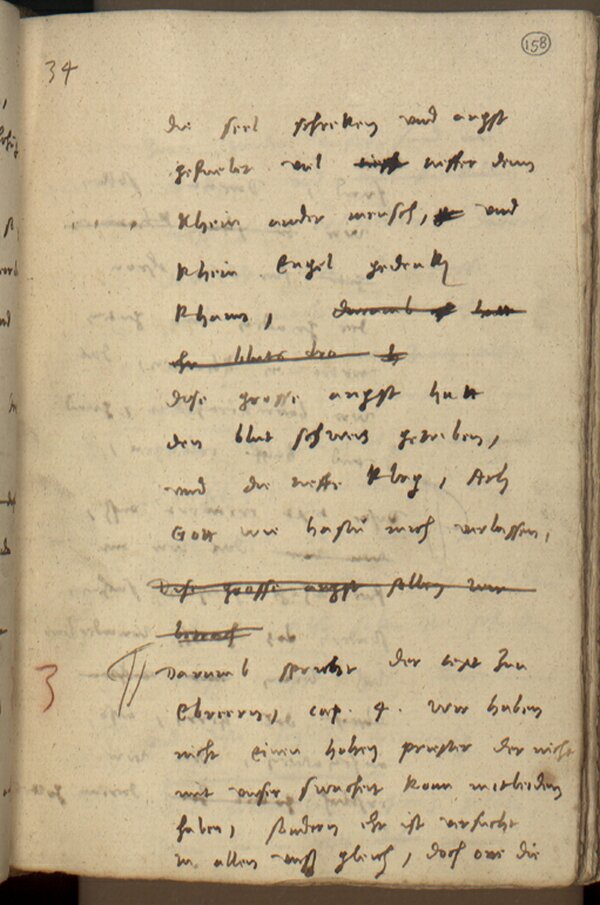 158
34
die seel schreken und angst
gefuelet viel tieffer denn
khein ander mensch, und
khein Engel gedenken
khann, darumb
dise grosse angst hatt
den blut schweis getriben,
und die tieffe klag, Ach
Gott wie hastu mich verlassen,
dise grosse angst sollen wir
betrach
3
Darumb spricht der text zun
Ebreern, cap. 4. wir haben
nicht einen hohen priester der nicht
mit unser swacheit kann mitleiden
haben, sondern ehr ist versucht
in allen uns gleich, doch one die